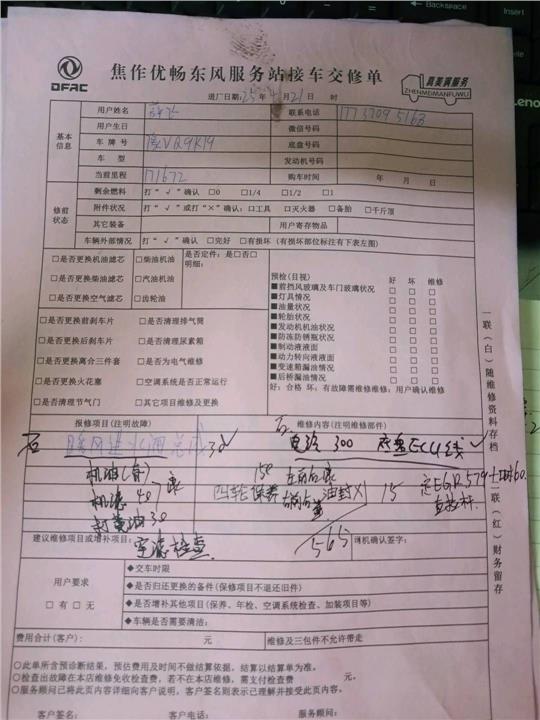 DFAC
焦作优畅东风服务站接车交修单
真美满服务
ZHENMEIMANFUWU
进厂日期：25年 月21日 时
基本信息
用户姓名 联系电话
用户生日 微信号码
车牌号 豫VQ9K19 底盘号
车型 发动机号码
当前里程 171672 购车时间 年 月 日
修前状态
剩余燃料 打“√”确认 □0 □1/4 □1/2 □1
附件状况 打“√”或打“×”确认：□工具 □灭火器 □备胎 □千斤顶
其它装备 用户寄存物品
车辆外部情况 打“√”确认 □完好 □有损坏（有损坏部位标注有下表左图）
□是否更换机油滤芯 □柴油机油 是否定件：是□否□
□是否更换柴油滤芯 □汽油机油 明细：
□是否更换空气滤芯 □齿轮油
□是否更换前刹车片 □是否清理排气筒
□是否更换后刹车片 □是否清理尿素箱
□是否更换离合三件套 □是否为电气维修
□是否更换火花塞 □空调系统是否正常运行
□是否清理节气门 □其它项目维修及更换
预检(目视) 好 坏 维修
■前挡风玻璃及车门玻璃状况 □ □ □
■灯具情况 □ □ □
■油量状况 □ □ □
■轮胎状况 □ □ □
■发动机机油状况 □ □ □
■防冻防锈瓶状况 □ □ □
■制动液液面 □ □ □
■动力转向液液面 □ □ □
■变速箱漏油情况 □ □ □
■后桥漏油情况 □ □ □
好：合格 坏：有故障需维修维修：用户确认维修
一联（白）随维修资料存档
一联（红）财务留存
报修项目(注明故障) 维修内容(注明维修部件)
石 石
电路 300 ECU线
机油(自) 康 150 左前后康 油封×1 15 EGR579
机滤 40 四轮保养 右前后
打黄油 30
565
建议维修项目或增补项目： 空滤检查 司机确认签字：
用户要求
□有 □无
◆交车时限
◆是否归还更换的备件（保修项目不退还旧件）
◆是否增补其他项目（保养、年检、空调系统检查、加装项目等）
◆车辆是否需要清洁：
费用合计(客户)： 元 维修及三包件不允许带走
○此单所含预诊断结果，预估费用及时间不做结算依据，结算以结算单为准。
○检查出故障在本店维修免收检查费，若不在本店维修，需支付检查费 元。
○服务顾问已将此页内容详细向客户说明，客户签名则表示已理解并接受此页内容。
客户签名： 客户电话： 服务顾问：